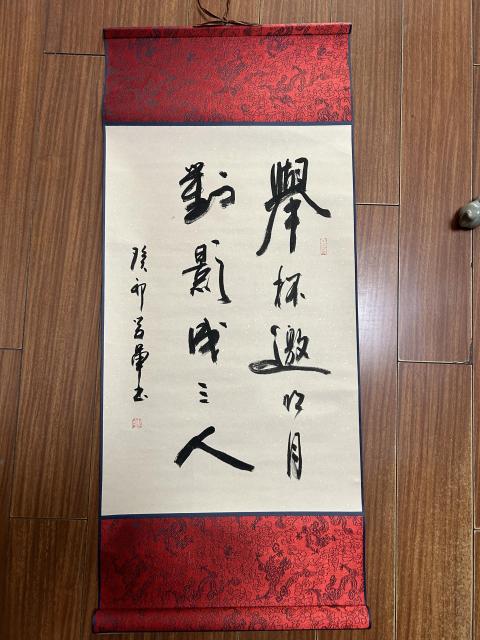 舉杯邀明月
對影成三人
癸卯 書